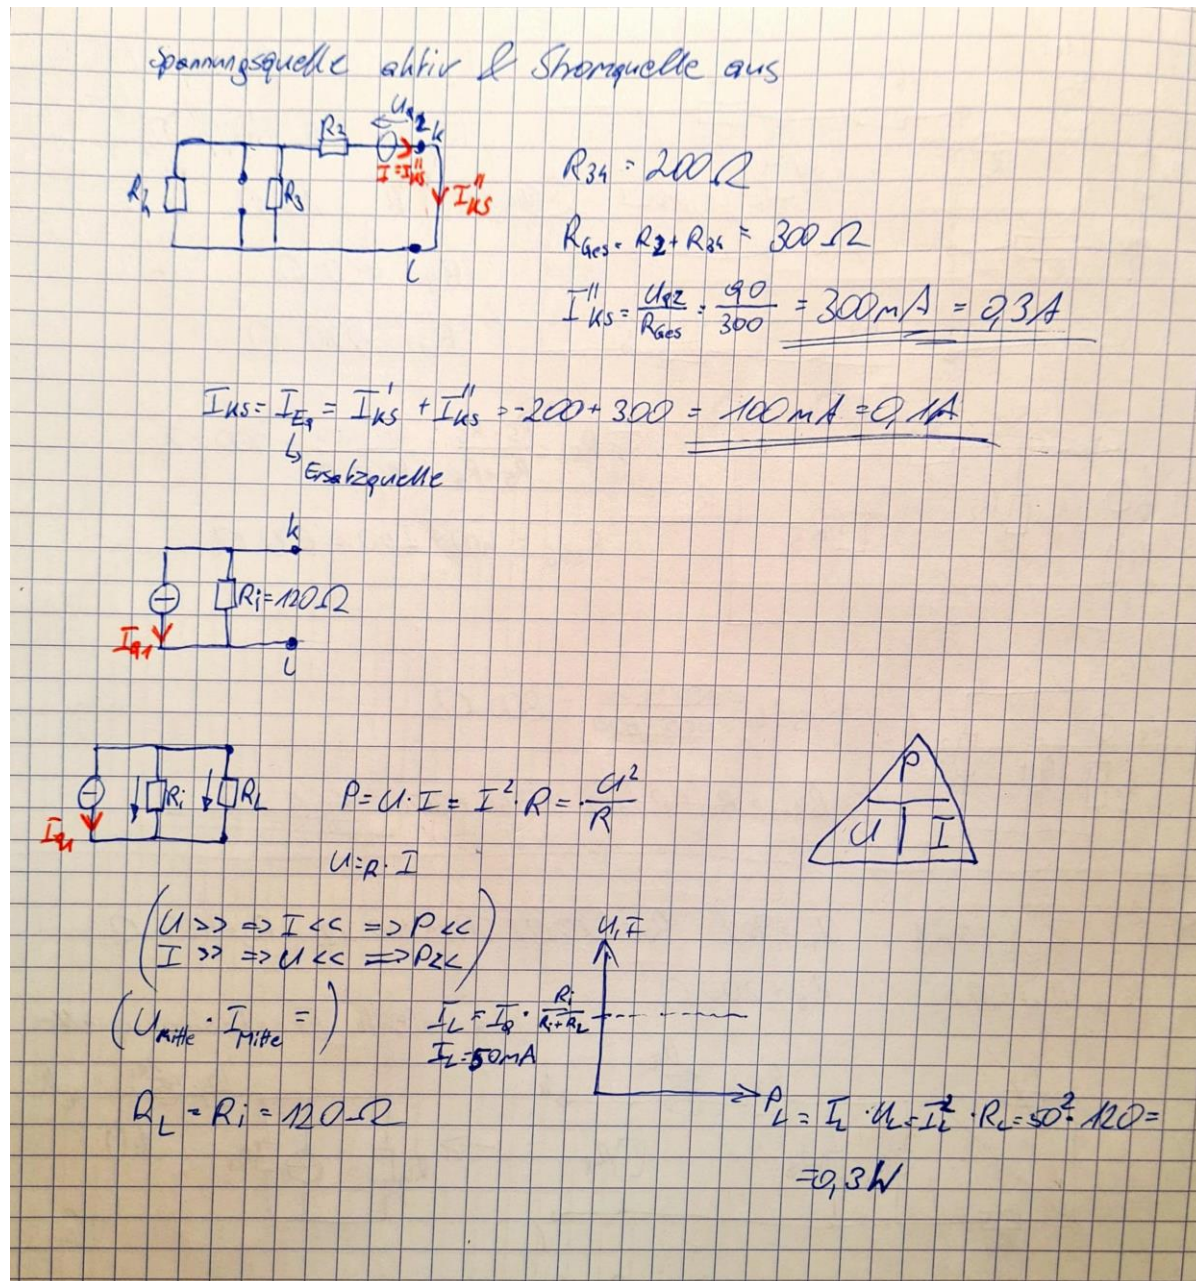 Spannungsquelle aktiv & Stromquelle aus
R₂ U_q2 K
I = I''_KS
R₄ R₃ I''_KS
L
R₃₄ = 200Ω
R_Ges = R₂ + R₃₄ = 300Ω
I''_KS = U_q2/R_Ges = 90/300 = 300mA = 0,3A
I_KS = I_Eq = I'_KS + I''_KS = -200 + 300 = 100mA = 0,1A
↳ Ersatzquelle
K
Ri = 120Ω
I_q1
L
I_q1 Ri R_L
P = U · I = I² · R = U²/R
U = R · I
P
U I
(U >> => I << => P <<
I >> => U << => P <<)
(U_Mitte · I_Mitte = )
U, I
I_L = I_Q · Ri/(Ri+R_L)
I_L = 50mA
R_L = Ri = 120Ω
P_L = I_L · U_L = I_L² · R_L = 50² · 120 =
= 0,3W